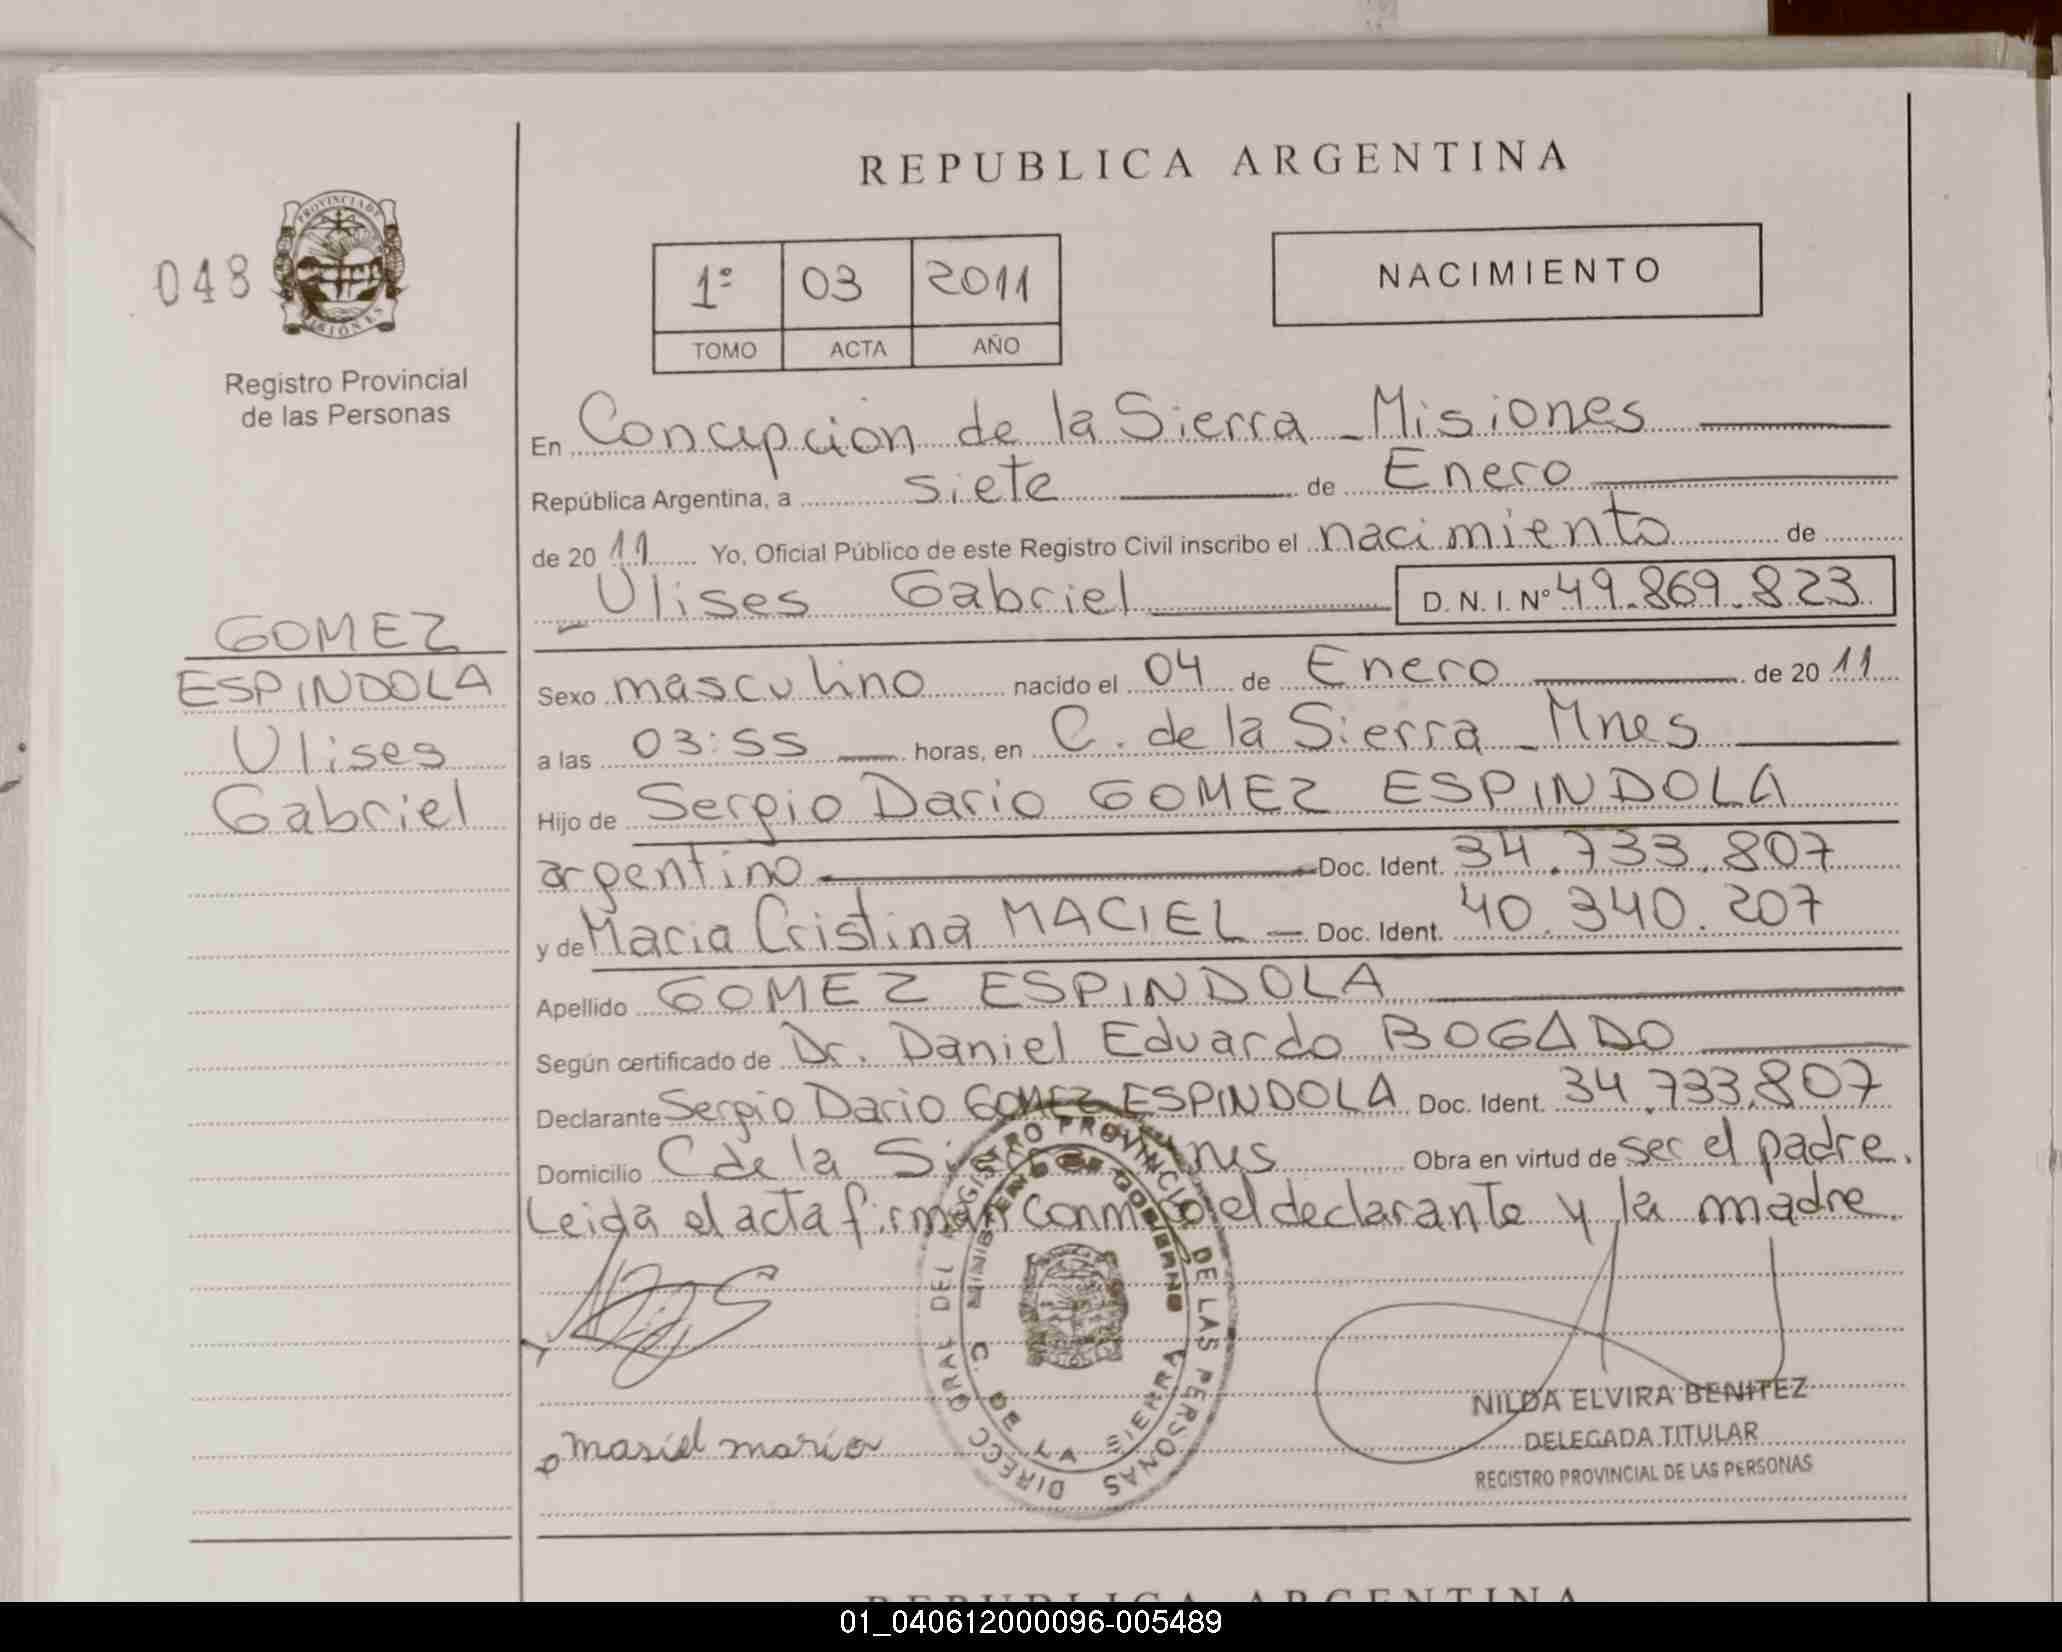 REPUBLICA ARGENTINA
048
PROVINCIA DE
MISIONES
Registro Provincial
de las Personas
1º 03 2011
TOMO ACTA AÑO
NACIMIENTO
En Concepcion de la Sierra - Misiones
República Argentina, a siete de Enero
de 2011 Yo, Oficial Público de este Registro Civil inscribo el nacimiento de
Ulises Gabriel D. N. I. Nº 49.869.823
GOMEZ
ESPINDOLA
Ulises
Gabriel
Sexo masculino nacido el 04 de Enero de 2011
a las 03:55 horas, en C. de la Sierra - Mnes
Hijo de Sergio Dario GOMEZ ESPINDOLA
argentino Doc. Ident. 34.733.807
y de Maria Cristina MACIEL - Doc. Ident. 40.340.207
Apellido GOMEZ ESPINDOLA
Según certificado de Dr. Daniel Eduardo BOGADO
Declarante Sergio Dario GOMEZ ESPINDOLA Doc. Ident. 34.733.807
Domicilio C de la Obra en virtud de ser el padre.
Leida el acta firman conmigo el declarante y la madre.
DIRECC GRAL DEL REGISTRO PROVINCIAL DE LAS PERSONAS
MINISTERIO DE GOBIERNO
C. DE LA SIERRA
masiel maria
NILDA ELVIRA BENITEZ
DELEGADA TITULAR
REGISTRO PROVINCIAL DE LAS PERSONAS
REPUBLICA ARGENTINA
01_040612000096-005489